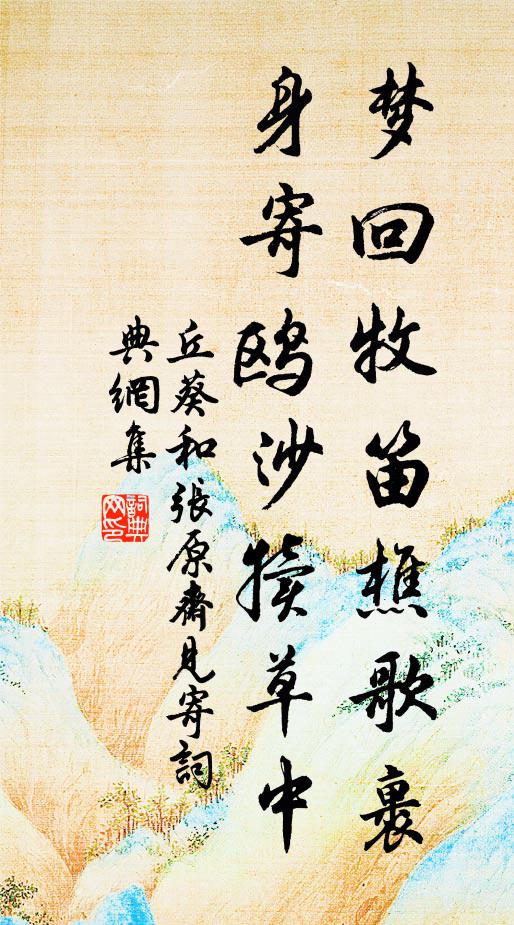 梦回牧笛樵歌裏
身寄鸥沙犊草中
丘葵和張原齋見寄詞
典網集
詞典网印